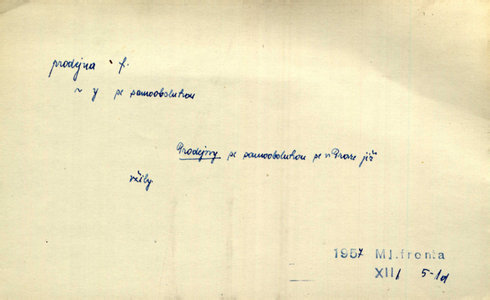 prodejna f.
~ y se samoobsluhou
Prodejny se samoobsluhou se v Praze již
vžily.
1957 Ml.fronta
XII/ 5-1d